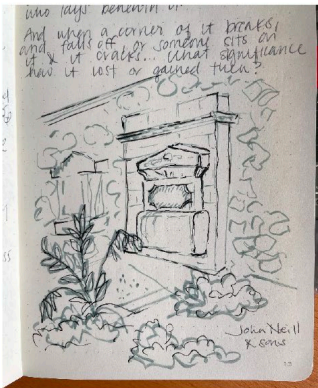 who lays beneath it.
And when a corner of it breaks,
and falls off, or someone sits on
it & it cracks... What significance
has it lost or gained then?
John Neill
& sons